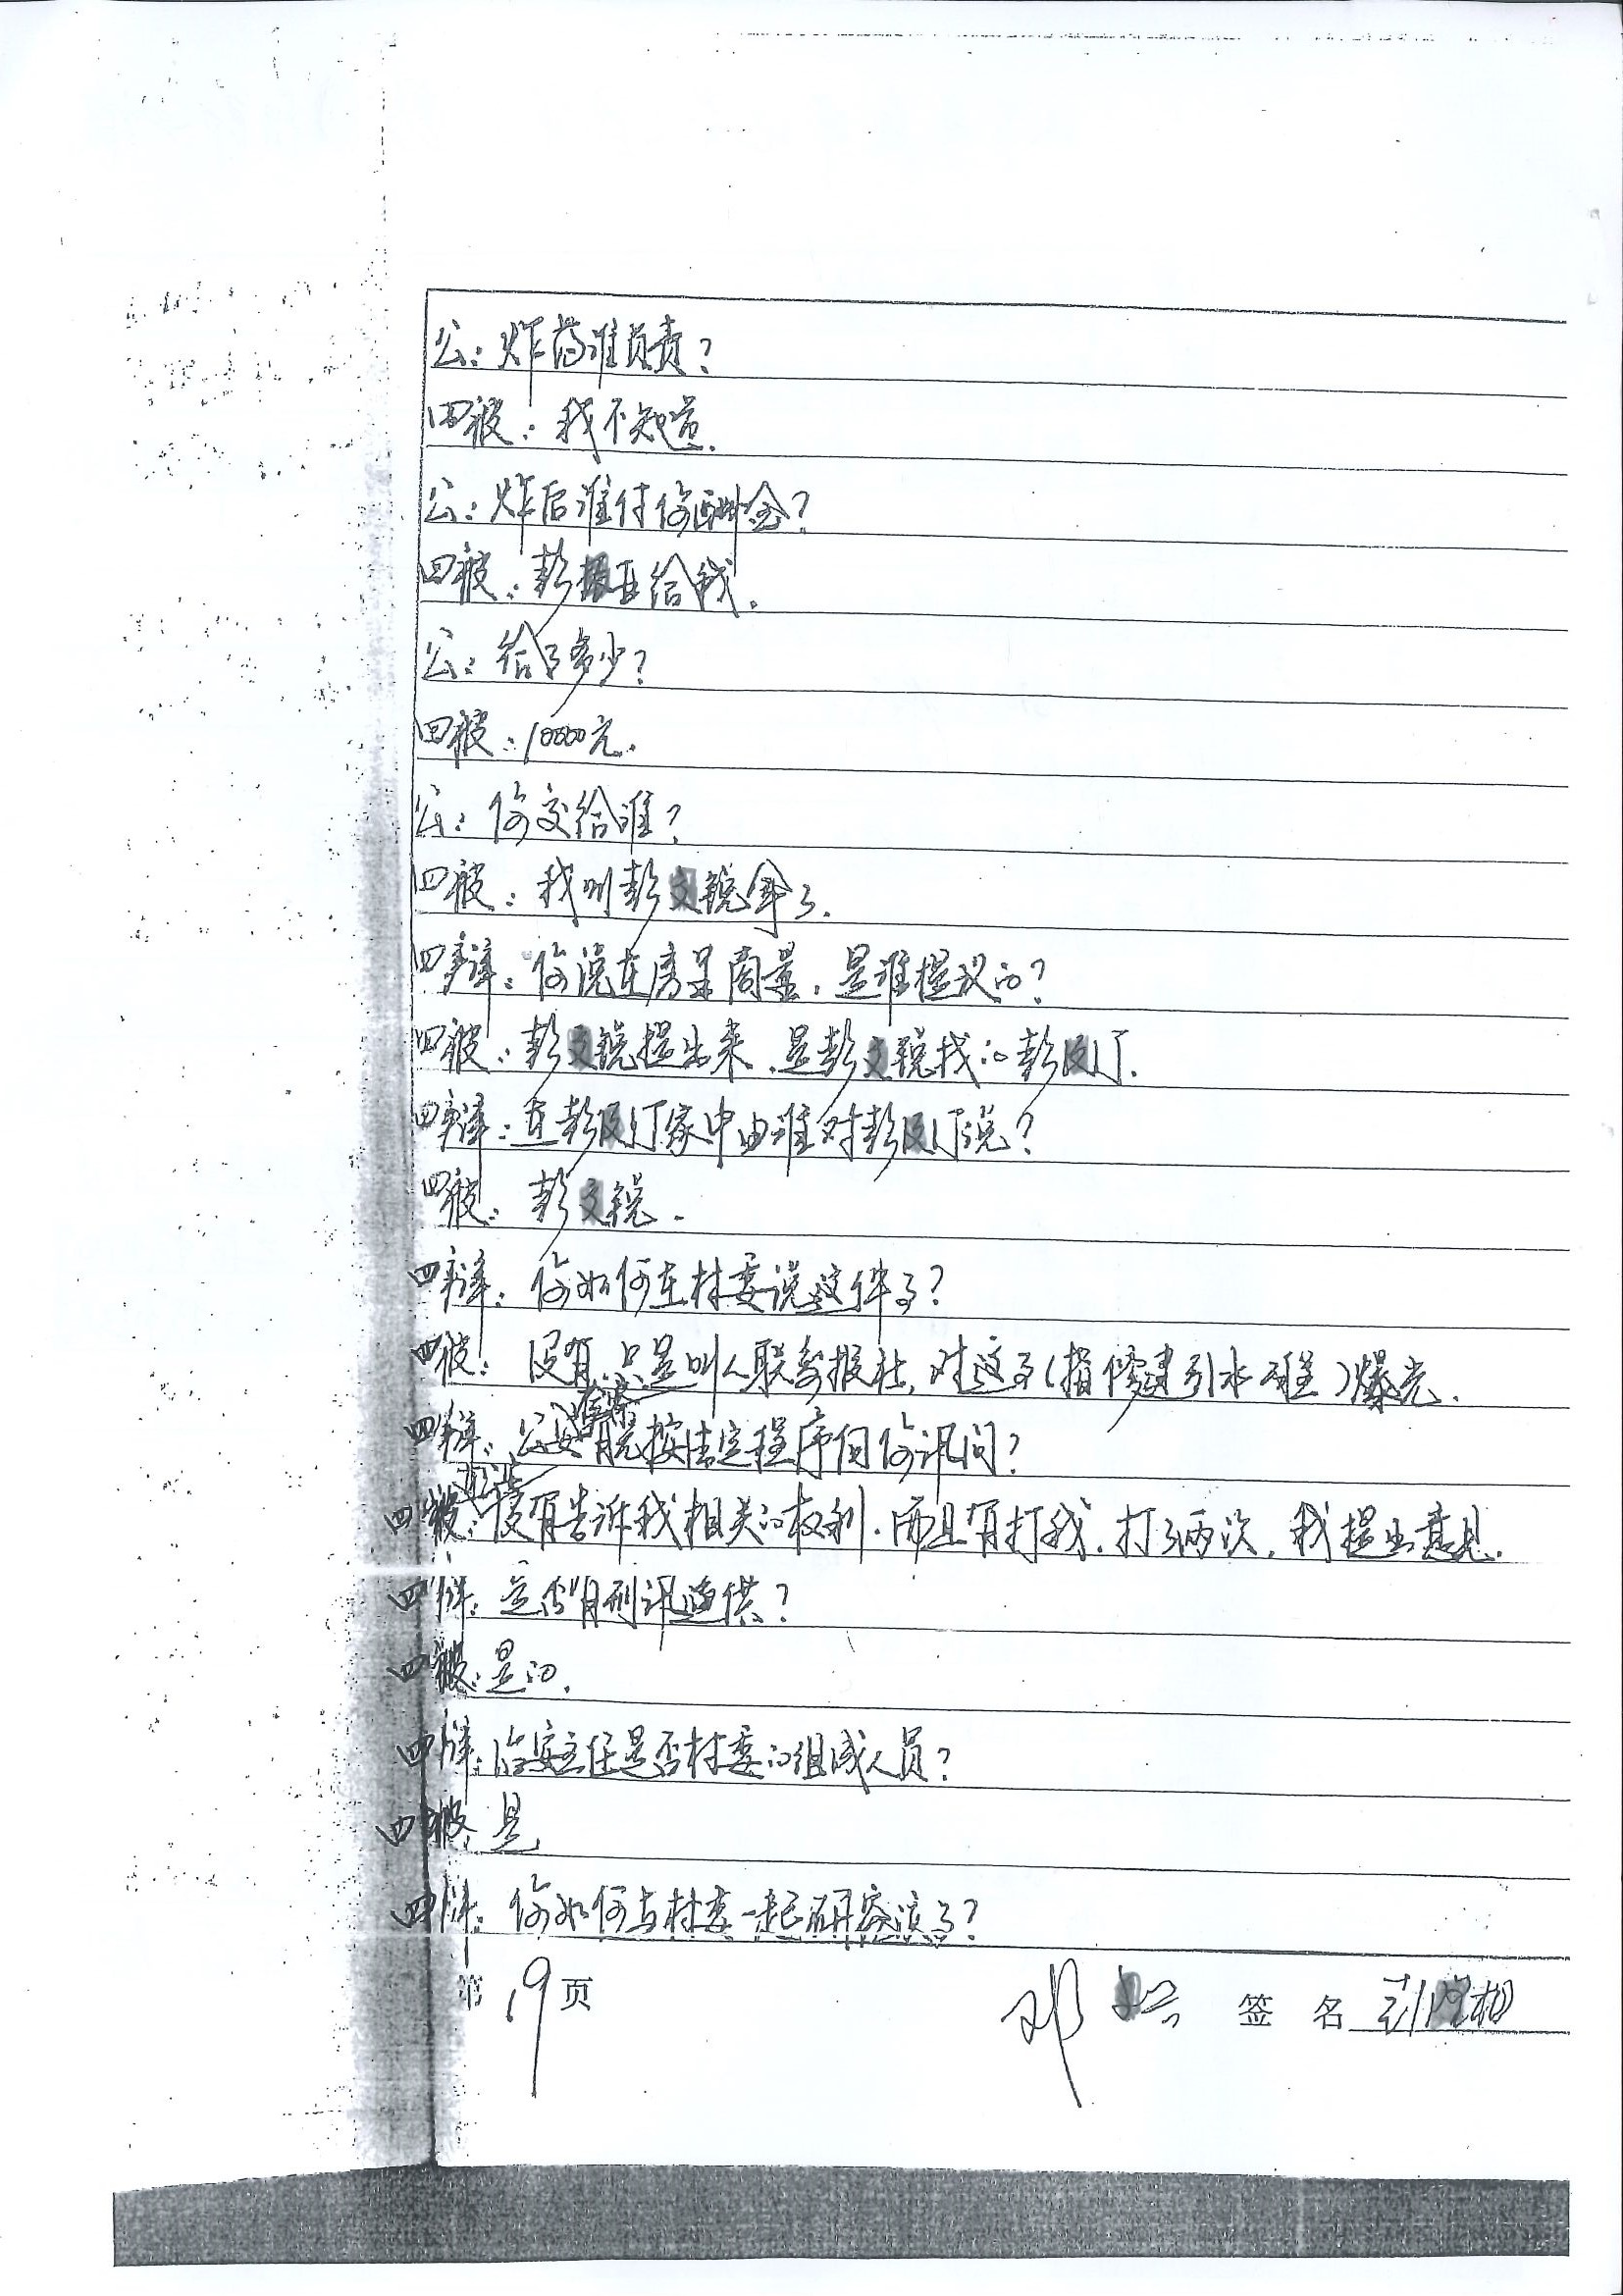 公：炸药谁负责？
四被：我不知道.
公：炸后谁付你酬金？
四被：彭 给我.
公：给了多少？
四被：10000元.
公：你交给谁？
四被：我叫彭 锐拿了.
四辩：你说在房里商量，是谁提议的？
四被：彭 锐提出来，是彭 锐找的彭 汀.
四辩：在彭 汀家中由谁对彭 汀说？
四被：彭 锐.
四辩：你如何在村委说这件事？
四被：没有，只是叫人联系报社，对这事(指修建引水 )爆光.
四辩：公安 按法定程序向你讯问？
四被：没有告诉我相关的权利.而且有打我.打了两次，我提出意见.
四辩：是否有刑讯逼供？
四被：是的.
四辩：治安主任是否村委的组成人员？
四被：是
四辩：你如何与村委一起研究该事？
第19页
邓 签名